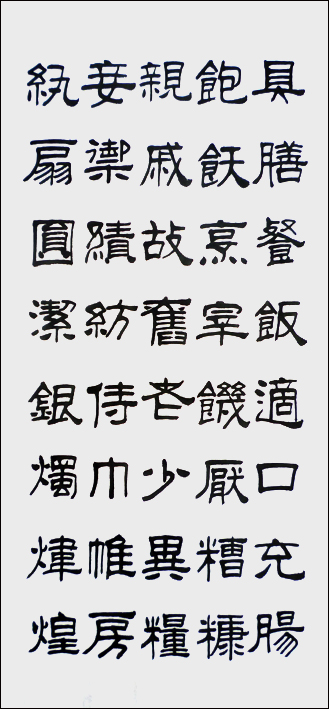 具膳餐飯適口充腸
飽飫烹宰饑厭糟糠
親戚故舊老少異糧
妾禦績紡侍巾帷房
紈扇圓潔銀燭煒煌